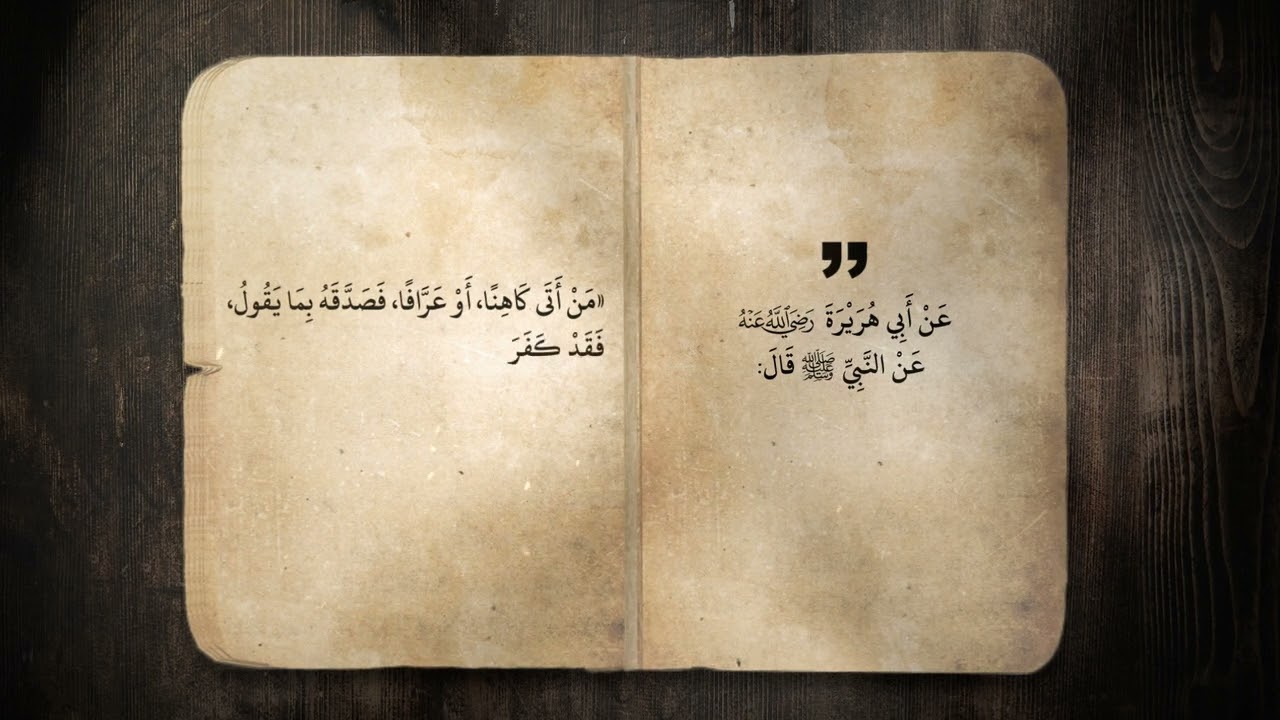 ”
عَنْ أَبِي هُرَيْرَةَ رَضِيَ اللَّهُ عَنْهُ
عَنْ النَّبِيِّ ﷺ قَالَ:
«مَنْ أَتَى كَاهِنًا، أَوْ عَرَّافًا، فَصَدَّقَهُ بِمَا يَقُولُ،
فَقَدْ كَفَرَ